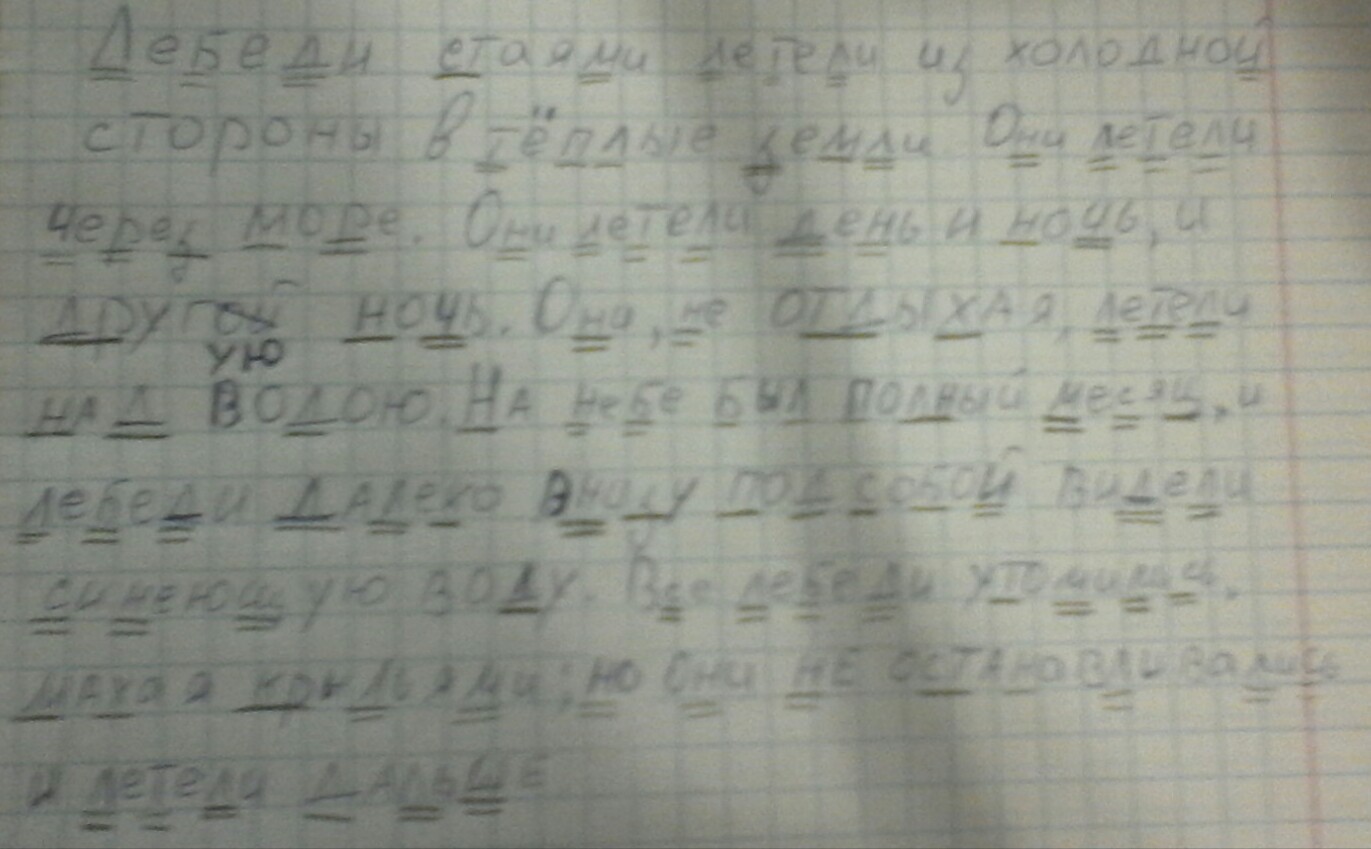 Лебеди стаями летели из холодной
стороны в тёплые земли Они летели
через море. Они летели день и ночь, и
другой ночь. Они, не отдыхая, летели
ую
над водою. На небе был полный месяц, и
лебеди далеко внизу под собой видели
синеющую воду. Все лебеди утомились,
махая крыльями; но они не останавливались
и летели дальше